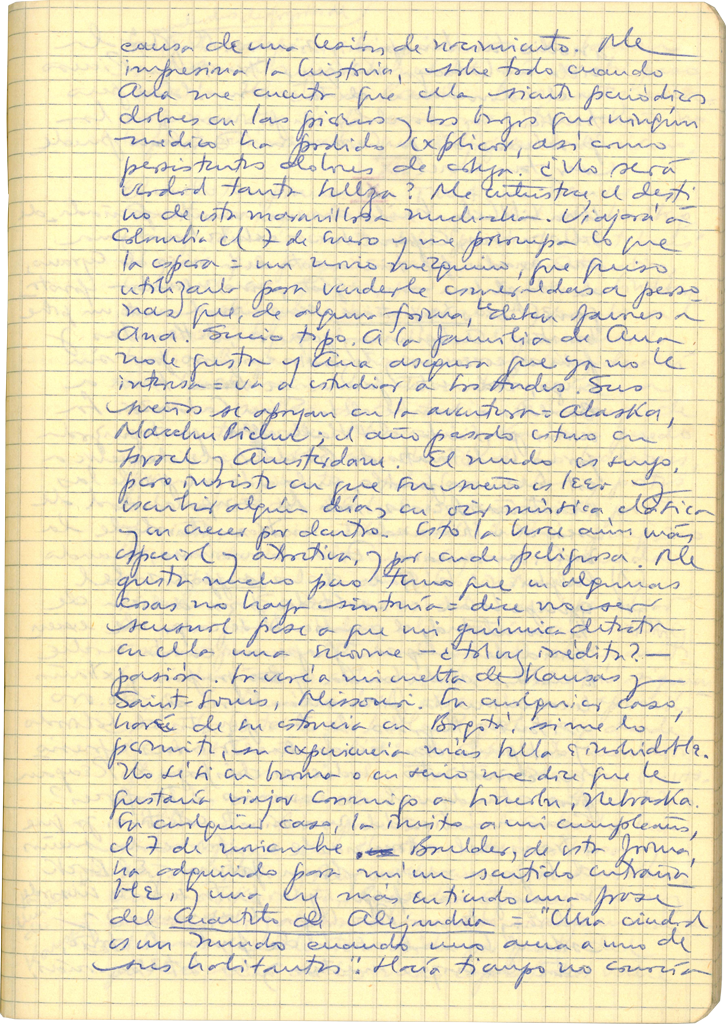 causa de una lesión de nacimiento. Me
impresiona la historia, sobre todo cuando
Ana me cuenta que ella siente periódicos
dolores en las piernas y los brazos que ningún
médico ha podido explicar, así como
persistentes dolores de cabeza. ¿No será
verdad tanta belleza? Me entristece el desti
no de esta maravillosa muchacha. Viajará a
Colombia el 7 de enero y me preocupa lo que
la espera = un novio mezquino, que quiso
utilizarla para venderle esmeraldas a perso
nas que, de alguna forma, le deben favores a
Ana. Sucio tipo. A la familia de Ana
no le gusta y Ana asegura que ya no le
interesa = va a estudiar a Los Andes. Sus
sueños se apoyan en la aventura = Alaska,
Macchu Picchu; el año pasado estuvo en
Israel y Amsterdam. El mundo es suyo,
pero insiste en que su sueño es leer y
escribir algún día, en oír música clásica
y en crecer por dentro. Esto la hace aún más
especial y atractiva, y por ende peligrosa. Me
gusta mucho pero temo que en algunas
cosas no haya sintonía = dice no ser
sensual pese a que mi química detecta
en ella una enorme — ¿tal vez inédita? —
pasión. La veré a mi vuelta de Kansas y
Saint-Louis, Missouri. En cualquier caso,
haré de su estancia en Bogotá, si me lo
permite, su experiencia más bella e inolvidable.
No sé si en broma o en serio me dice que le
gustaría viajar conmigo a Lincoln, Nebraska.
En cualquier caso, la invito a mi cumpleaños,
el 7 de noviembre. Boulder, de esta forma,
ha adquirido para mí un sentido entraña
ble, y una vez más entiendo una frase
del Cuarteto de Alejandría = "Una ciudad
es un mundo cuando uno ama a uno de
sus habitantes". Hacía tiempo no conocía